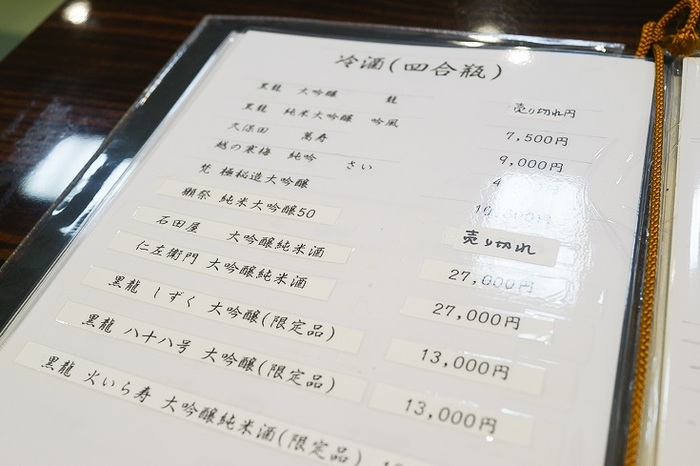 冷酒(四合瓶)
黒龍 大吟醸 龍 売り切れ円
黒龍 純米大吟醸 吟風 7,500円
久保田 萬寿 9,000円
越の寒梅 純吟 さい
梵 極秘造大吟醸
獺祭 純米大吟醸50 売り切れ
石田屋 大吟醸純米酒 27,000円
仁左衛門 大吟醸純米酒 27,000円
黒龍 しずく 大吟醸(限定品) 13,000円
黒龍 八十八号 大吟醸(限定品) 13,000円
黒龍 火いら寿 大吟醸純米酒(限定品)